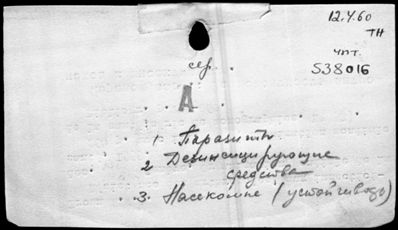 12.4.60
ТН
чпт.
538016
сер.
А
1 Паразиты
2 Дезинсицирующие
средства
3. Насекомые (устойчивость)